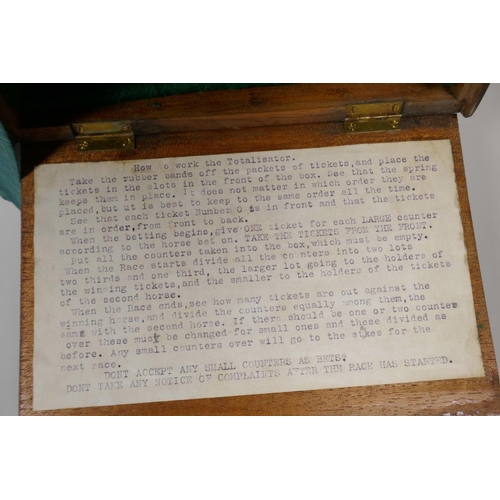 How o work the Totalisator.
Take the rubber bands off the packets of tickets,and place the
tickets in the slots in the front of the box. See that the spring
keeps them in place. It does not matter in which order they are
placed,but ut is best to keep to the same order all the time.
See that each ticket Number 0 is in front and that the tickets
are in order,from front to back.
When the betting begins,give ONE ticket for each LARGE counter
according to the horse bet on. TAKE THE TICKETS FROM THE FRONT.
Put all the counters taken into the box,which must be empty.
When the Race starts divide all the counters into two lots
two thirds and one third, the larger lot going to the holders of
the winning tickets,and the smaller to the holders of the tickets
of the second horse.
When the Race ends,see how many tickets are out against the
winning horse,and divide the counters equally among them,the
same with the second horse. If there should be one or two counters
over these must be changed for small ones and these divided as
before. Any small counters over will go to the stakes for the
next race.
DONT ACCEPT ANY SMALL COUNTERS AS BETS.
DONT TAKE ANY NOTICE OF COMPLAINTS AFTER THE RACE HAS STARTED.